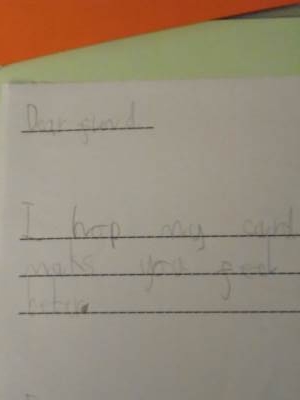 Dear
I hop my card
maks you
beter.